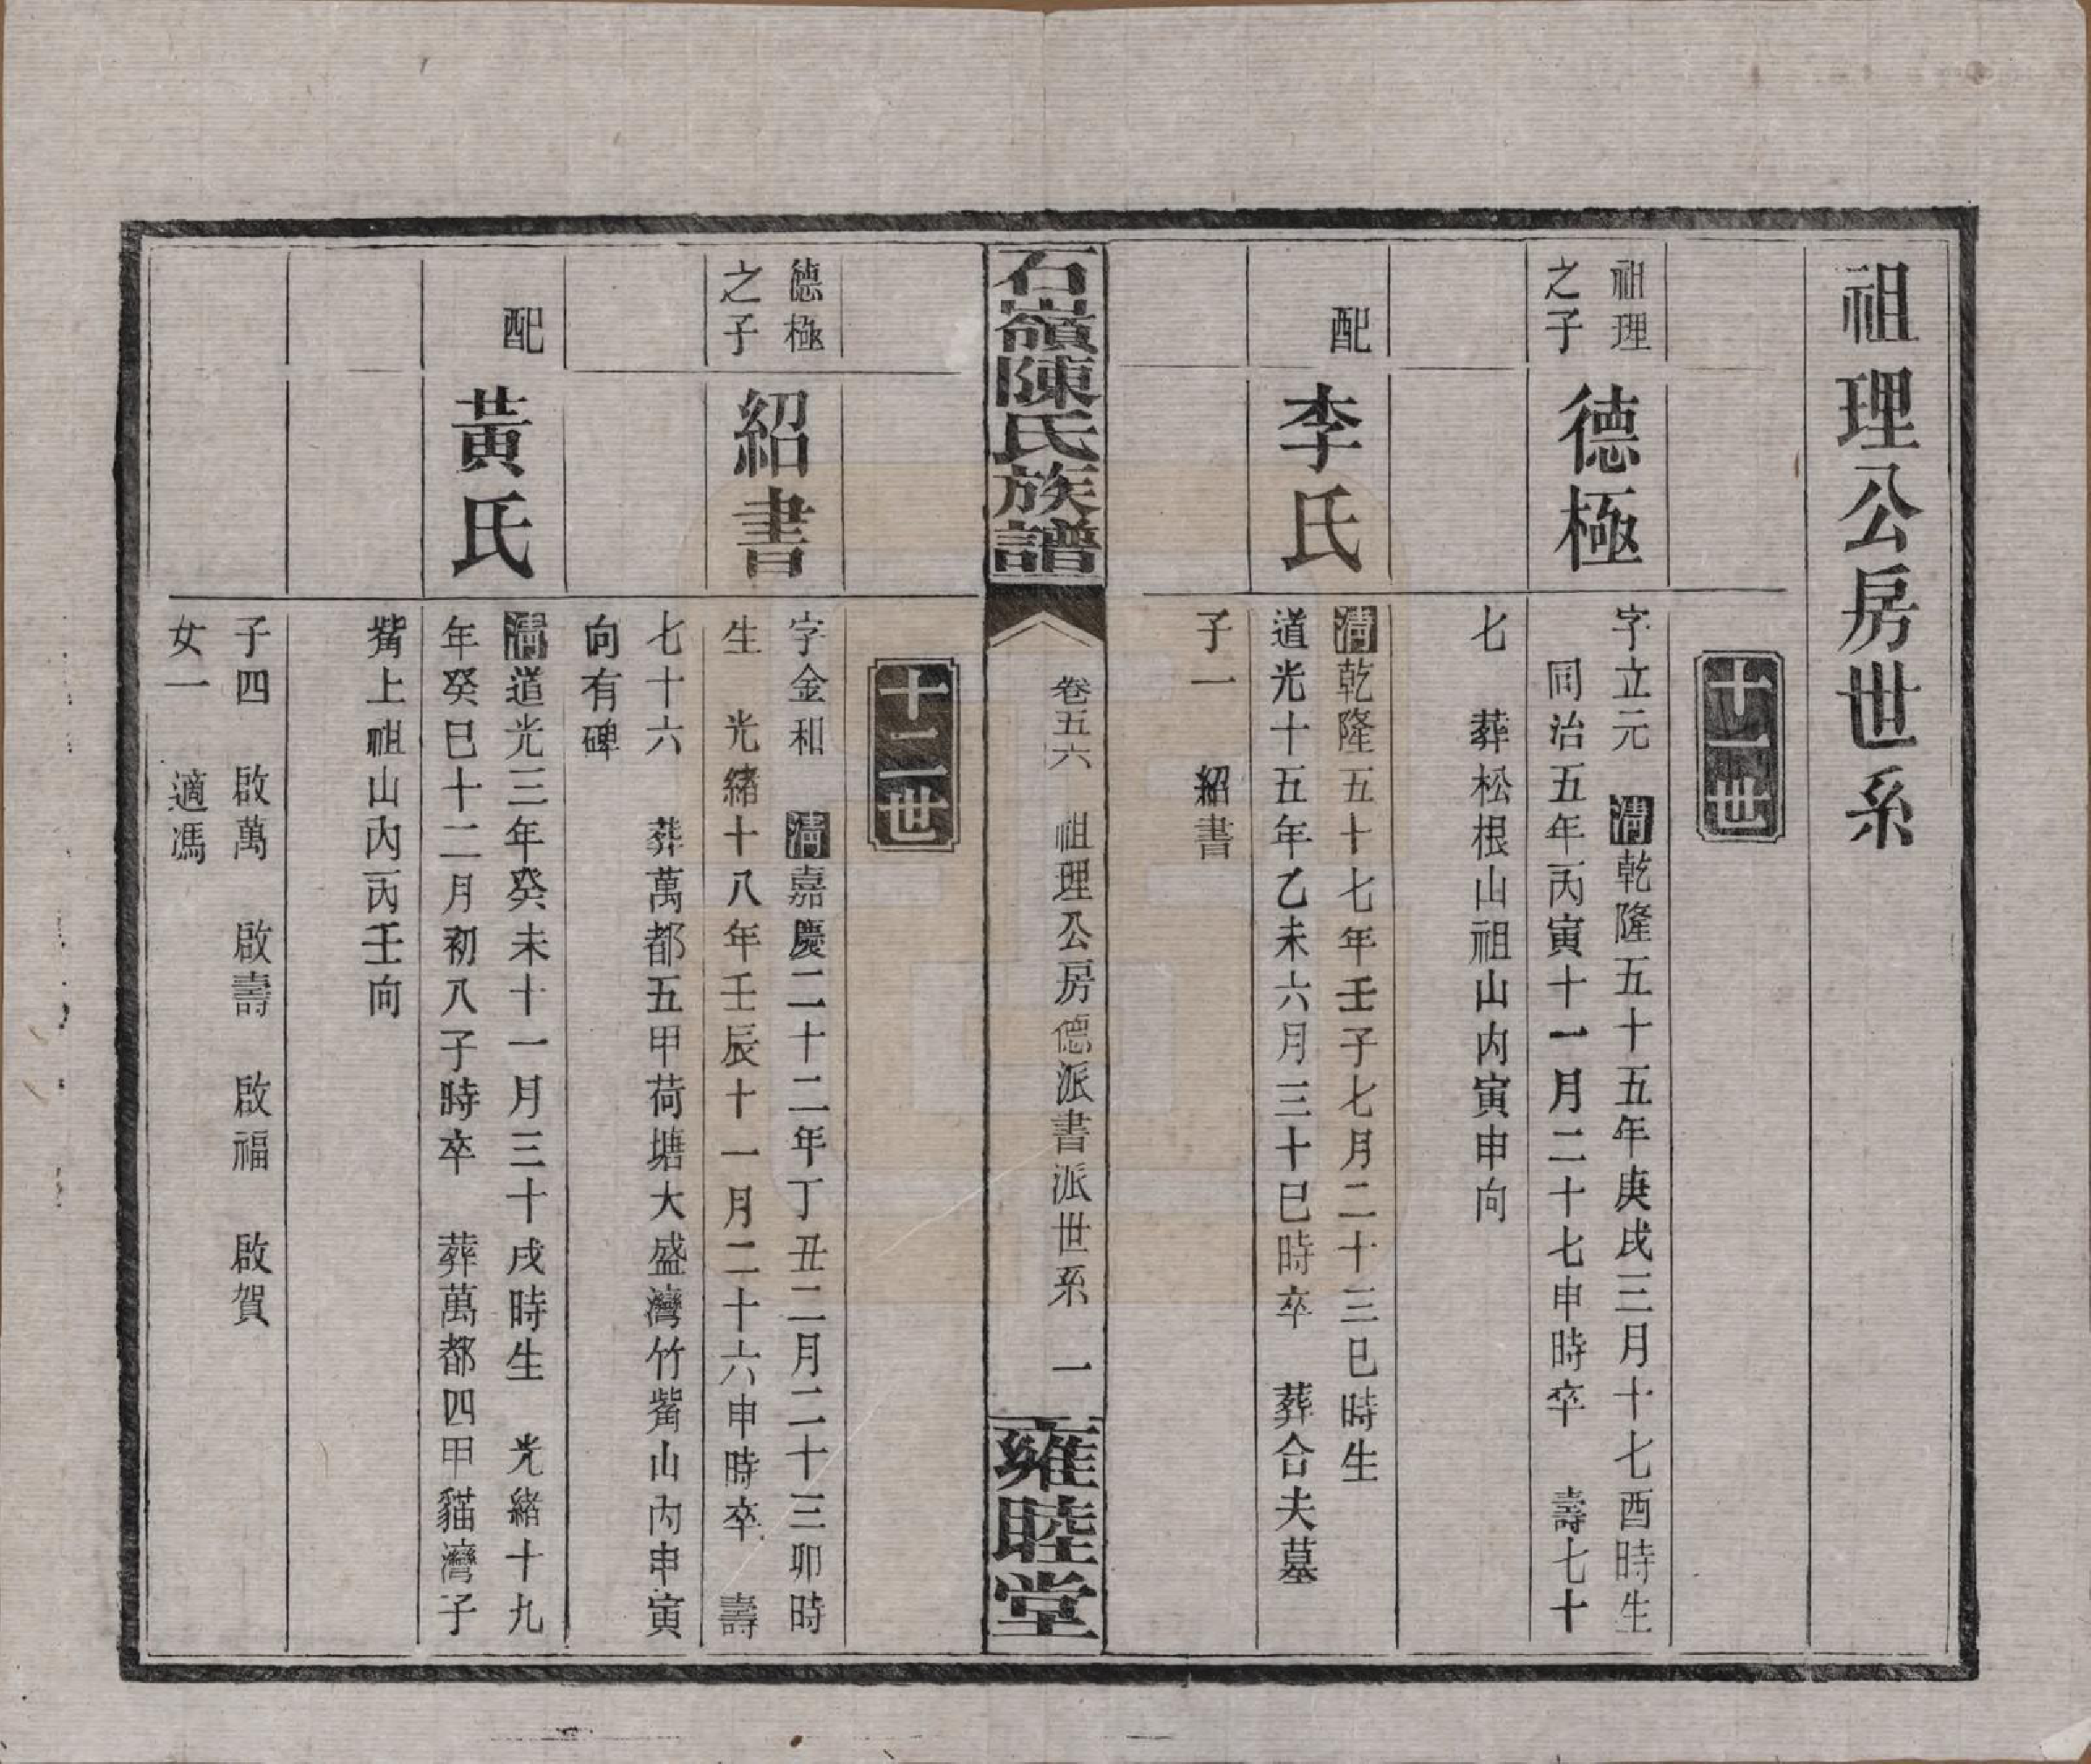 祖理公房世系
十一世
祖理
之子
德極
字立元　清乾隆五十五年庚戌三月十七酉時生
同治五年丙寅十一月二十七申時卒　壽七十
七　葬松根山祖山內寅申向
配
李氏
清乾隆五十七年壬子七月二十三巳時生
道光十五年乙未六月三十巳時卒　葬合夫墓
子一　紹書
石嶺陳氏族譜
卷五六　祖理公房德派書派世系　一
雍睦堂
十二世
德極
之子
紹書
字金和　清嘉慶二十二年丁丑二月二十三卯時
生　光緒十八年壬辰十一月二十六申時卒　壽
七十六　葬萬都五甲荷塘大盛灣竹觜山內申寅
向有碑
配
黃氏
清道光三年癸未十一月三十戌時生　光緒十九
年癸巳十二月初八子時卒　葬萬都四甲貓灣子
觜上祖山內丙壬向
子四　啟萬　啟壽　啟福　啟賀
女一　適馮